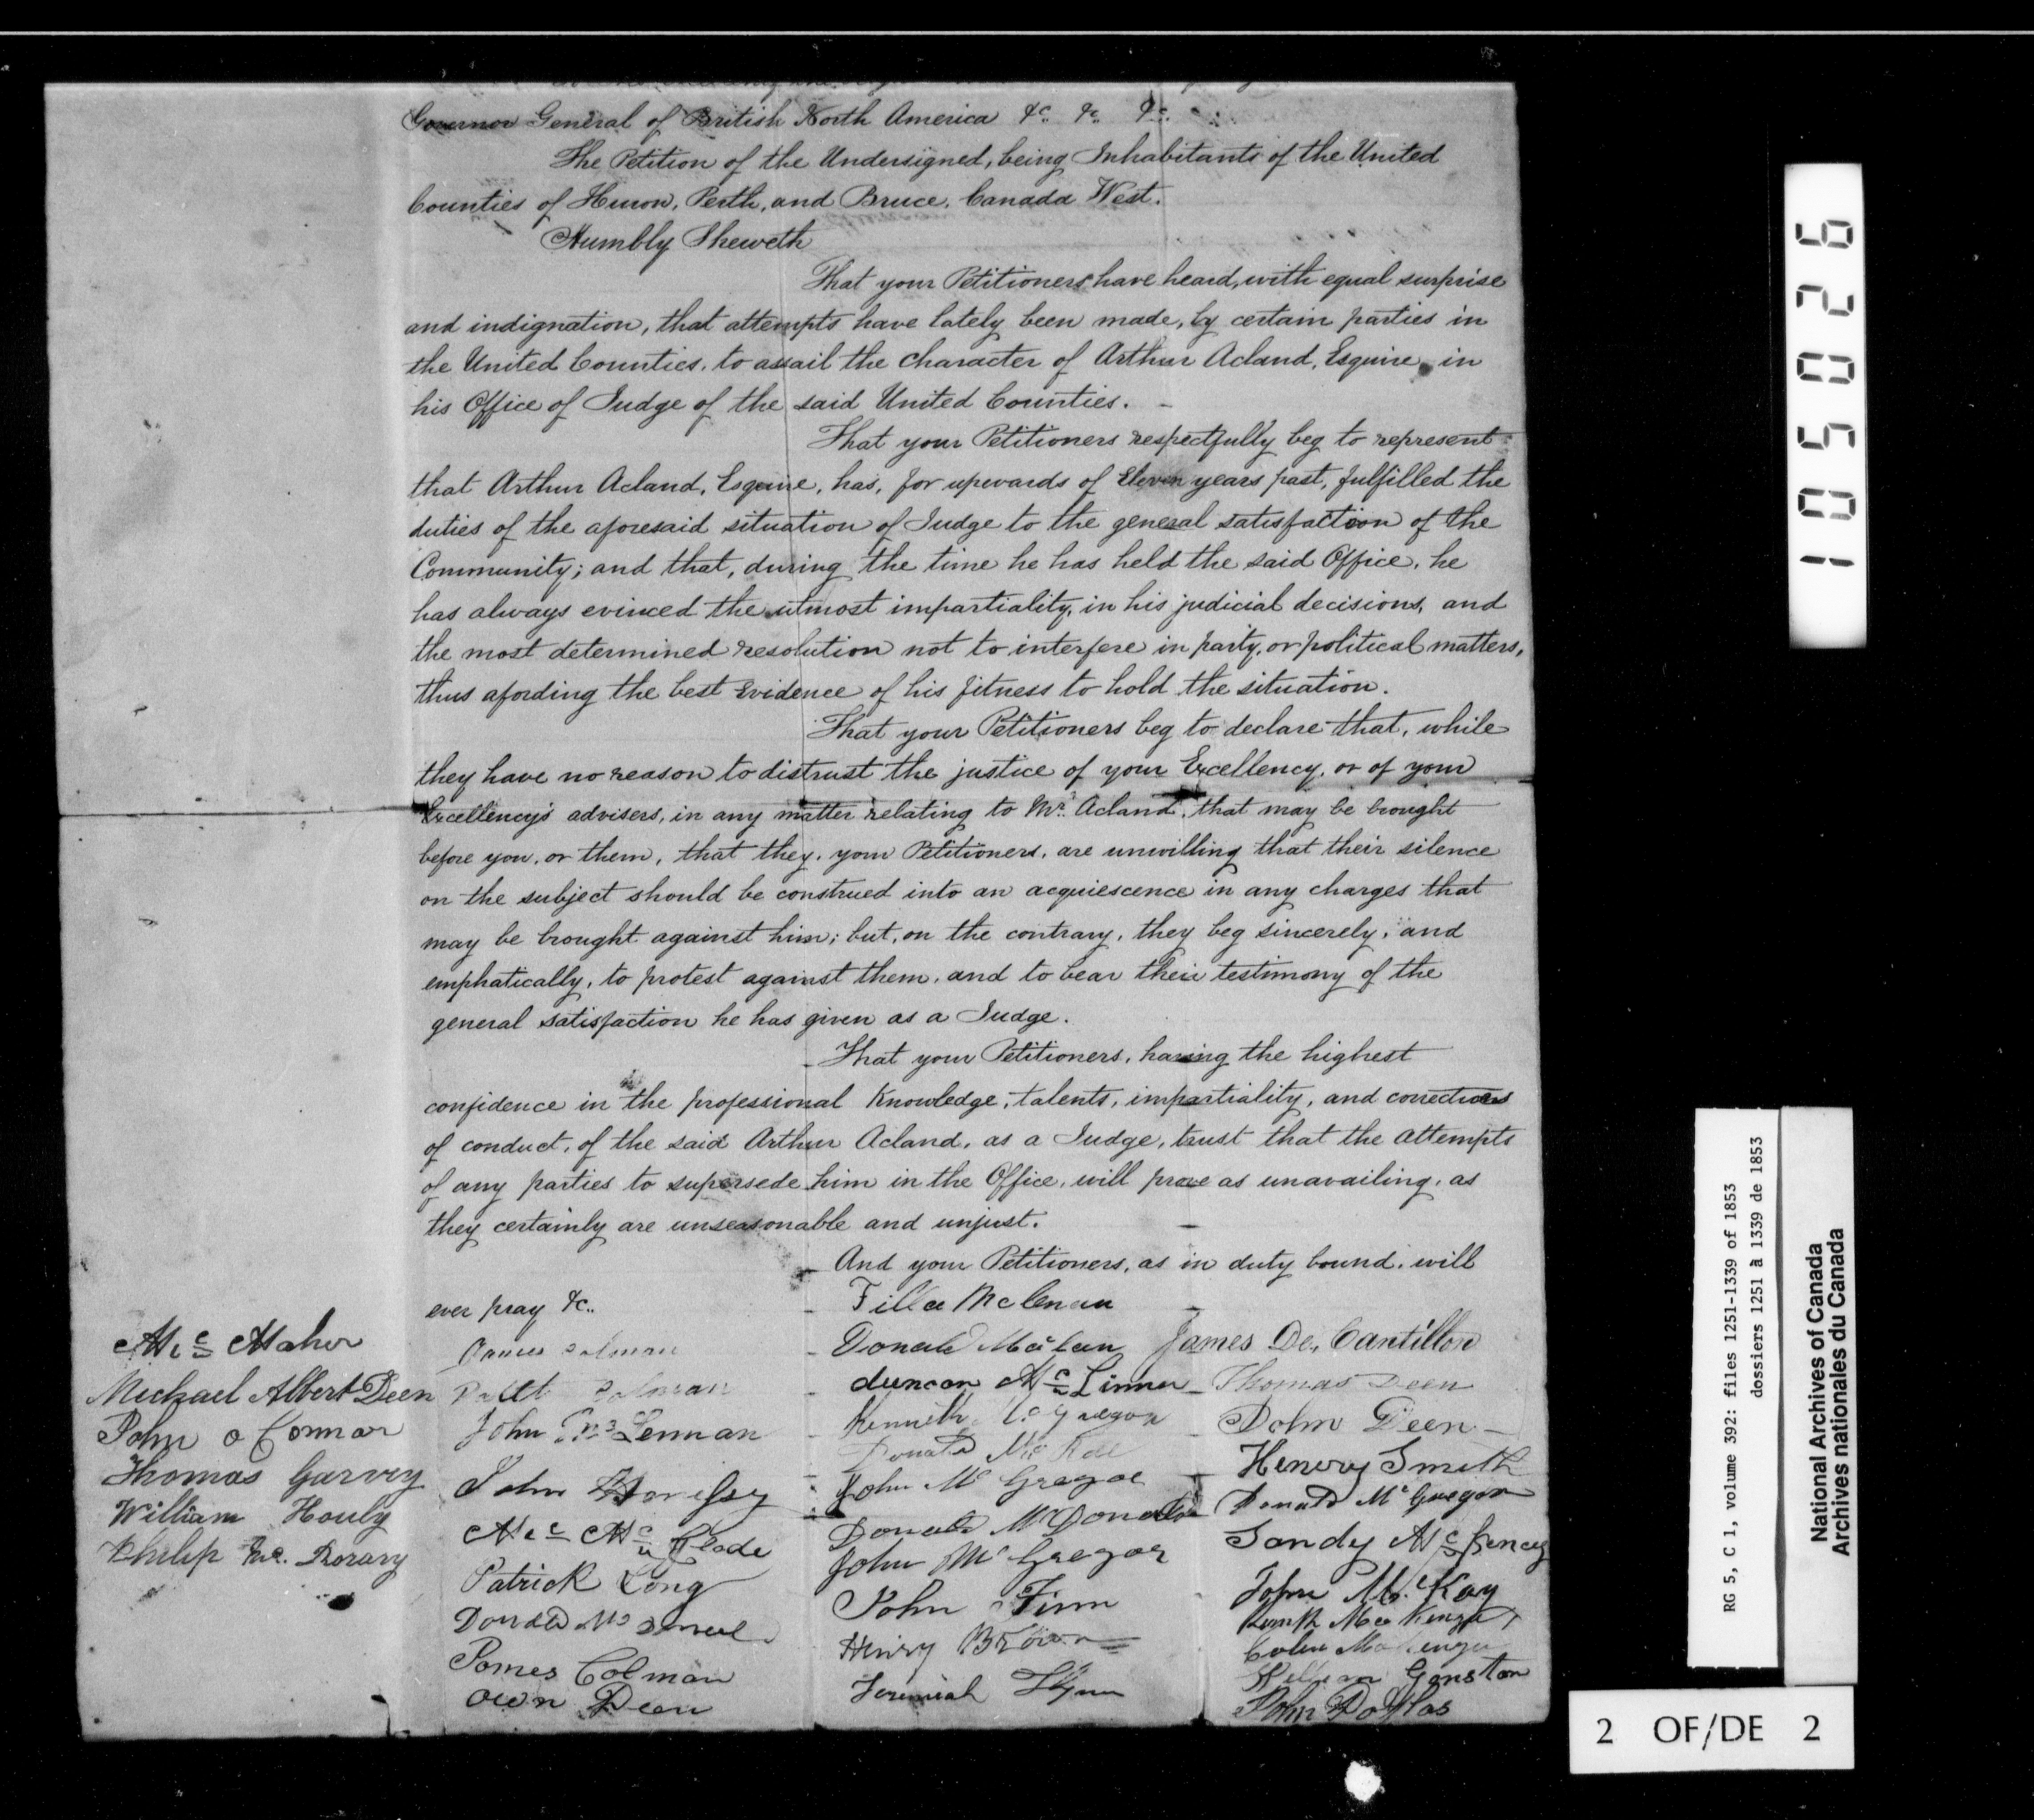 Governor General of British North America &c. &c. &c.
The Petition of the Undersigned, being Inhabitants of the United
Counties of Huron, Perth, and Bruce, Canada West.
Humbly Sheweth
That your Petitioners have heard, with equal surprise
and indignation, that attempts have lately been made, by certain parties in
the United Counties, to assail the character of Arthur Acland, Esquire, in
his Office of Judge of the said United Counties. —
That your Petitioners respectfully beg to represent
that Arthur Acland, Esquire, has, for upwards of Eleven years past, fulfilled the
duties of the aforesaid situation of Judge to the general satisfaction of the
Community; and that, during the time he has held the said Office, he
has always evinced the utmost impartiality, in his judicial decisions, and
the most determined resolution not to interfere in party, or political matters,
thus afording the best evidence of his fitness to hold the situation.
That your Petitioners beg to declare that, while
they have no reason to distrust the justice of your Excellency, or of your
Excellency's advisers, in any matter relating to Mr. Acland, that may be brought
before you, or them, that they, your Petitioners, are unwilling that their silence
on the subject should be construed into an acquiescence in any charges that
may be brought against him; but, on the contrary, they beg sincerely, and
emphatically, to protest against them, and to bear their testimony of the
general satisfaction he has given as a Judge.
That your Petitioners, having the highest
confidence in the professional Knowledge, talents, impartiality, and correctness
of conduct, of the said Arthur Acland, as a Judge, trust that the attempts
of any parties to supersede him in the Office, will prove as unavailing, as
they certainly are unseasonable and unjust. —
And your Petitioners, as in duty bound, will
ever pray &c..
Mic Maher
Michael Albert Deen
John o Connar
Thomas Garvey
William Houly
Philip Mc. Rorary
James Colman
Patt Colman
John Lennan
John
Mic Mc Glade
Patrick Long
Donald
James Colman
Owen Deen
Donald
duncan Mc Linnen
Kenneth McGregor
Donald Mc Rae
John Mc Gregor
Donald McDonald
John Mc Gregor
John Finn
Henry Brown
Jeremiah Flynn
James De, Cantillon
Thomas Deen
John Deen
Henery Smith
Donald McGregor
Sandy Mc
John Mc Kay
MacKenzie
Colin McKenzie
William Genston
John Douglas
105026
RG 5, C 1, volume 392: files 1251-1339 of 1853
dossiers 1251 à 1339 de 1853
National Archives of Canada
Archives nationales du Canada
2 OF/DE 2